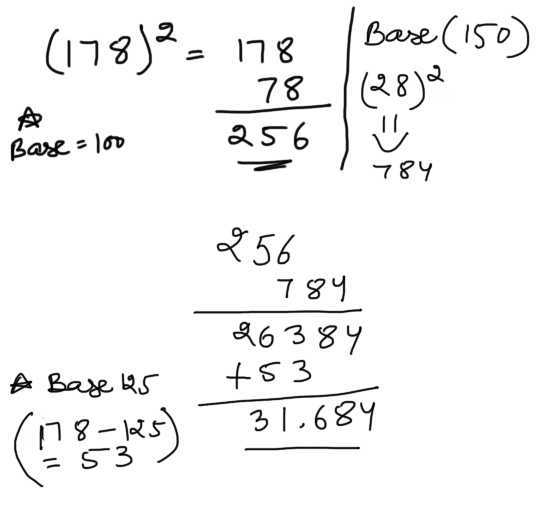 (178)² = 178
78
256
☆
Base = 100
Base (150)
(28)²
||
784
256
784
26384
+53
31.684
☆ Base 125
(178-125)
= 53